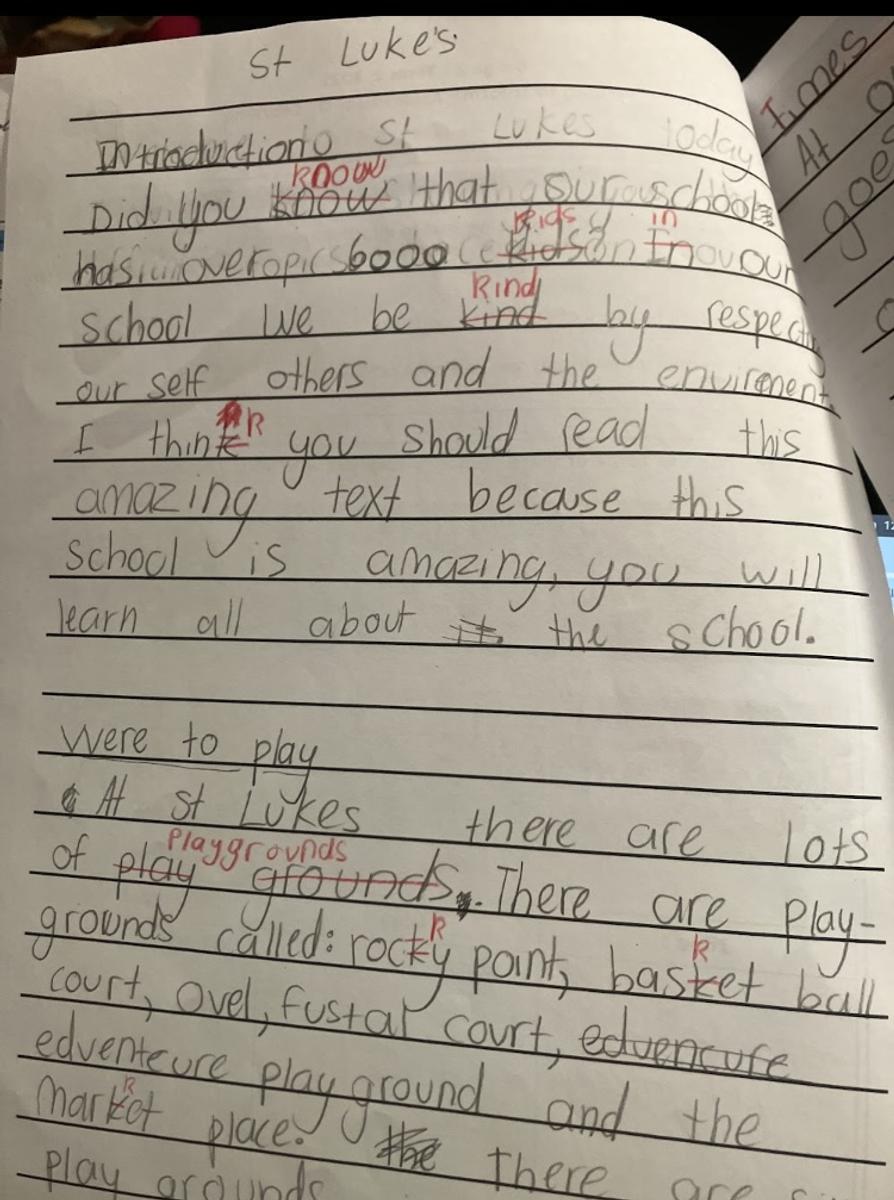 St Luke's
Introduction St Lukes today
know
Did you know that our school
kids in
has over 6000 kids In our
kind
school we be kind by respecting
our self others and the enviroment
k
I think you should read this
amazing text because this
school is amazing, you will
learn all about it. the school.
Were to play
At St Lukes there are lots
Playgrounds
of play grounds. There are Play-
k k
grounds called: rocky point, basket ball
court, Ovel, fustal court, edvencure
edventeure play ground and the
k
market place. the There are
play grounds
I mes
At
goes